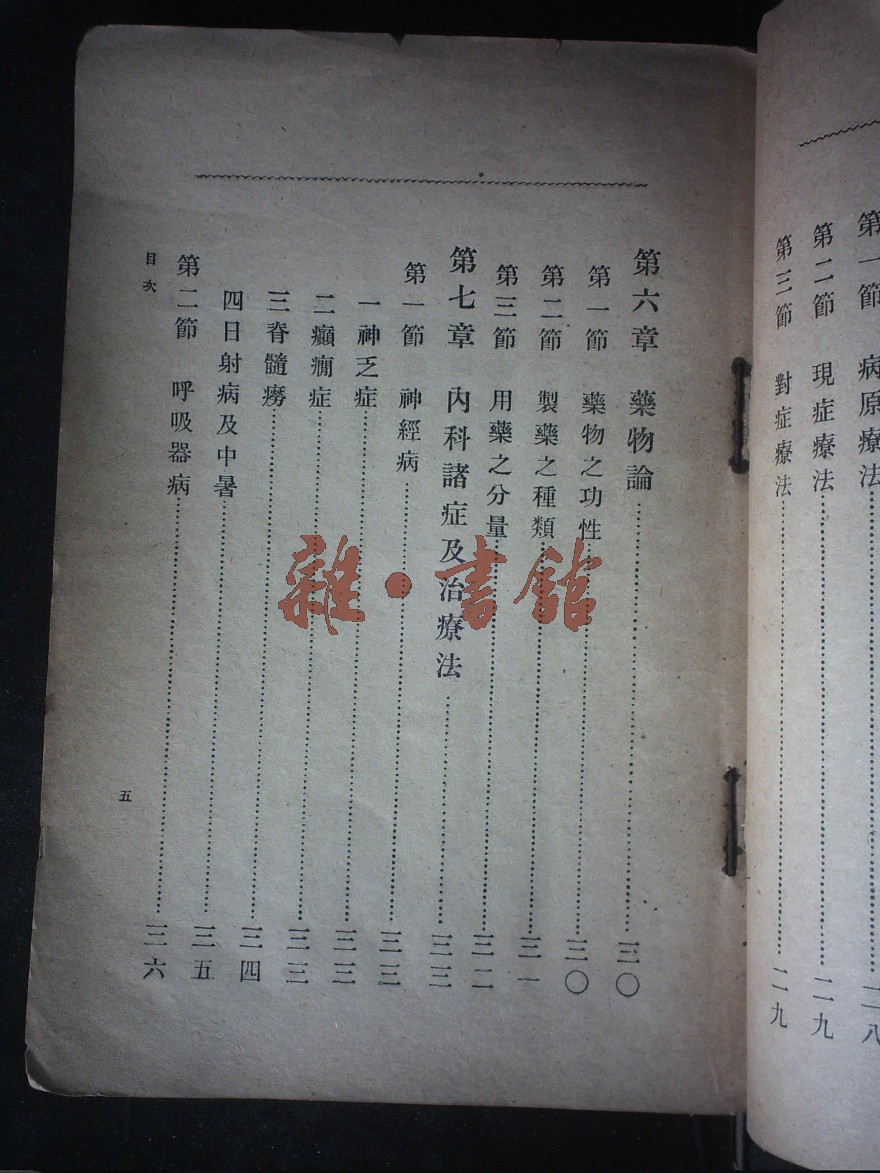 第一節 病原療法……二八
第二節 現症療法……二九
第三節 對症療法……二九
第六章 藥物論……三〇
第一節 藥物之功性……三〇
第二節 製藥之種類……三一
第三節 用藥之分量……三二
第七章 內科諸症及治療法……三三
第一節 神經病……三三
一神乏症……三三
二癲癇症……三三
三脊髓癆……三四
四日射病及中暑……三五
第二節 呼吸器病……三六
目次
五
雜·書館